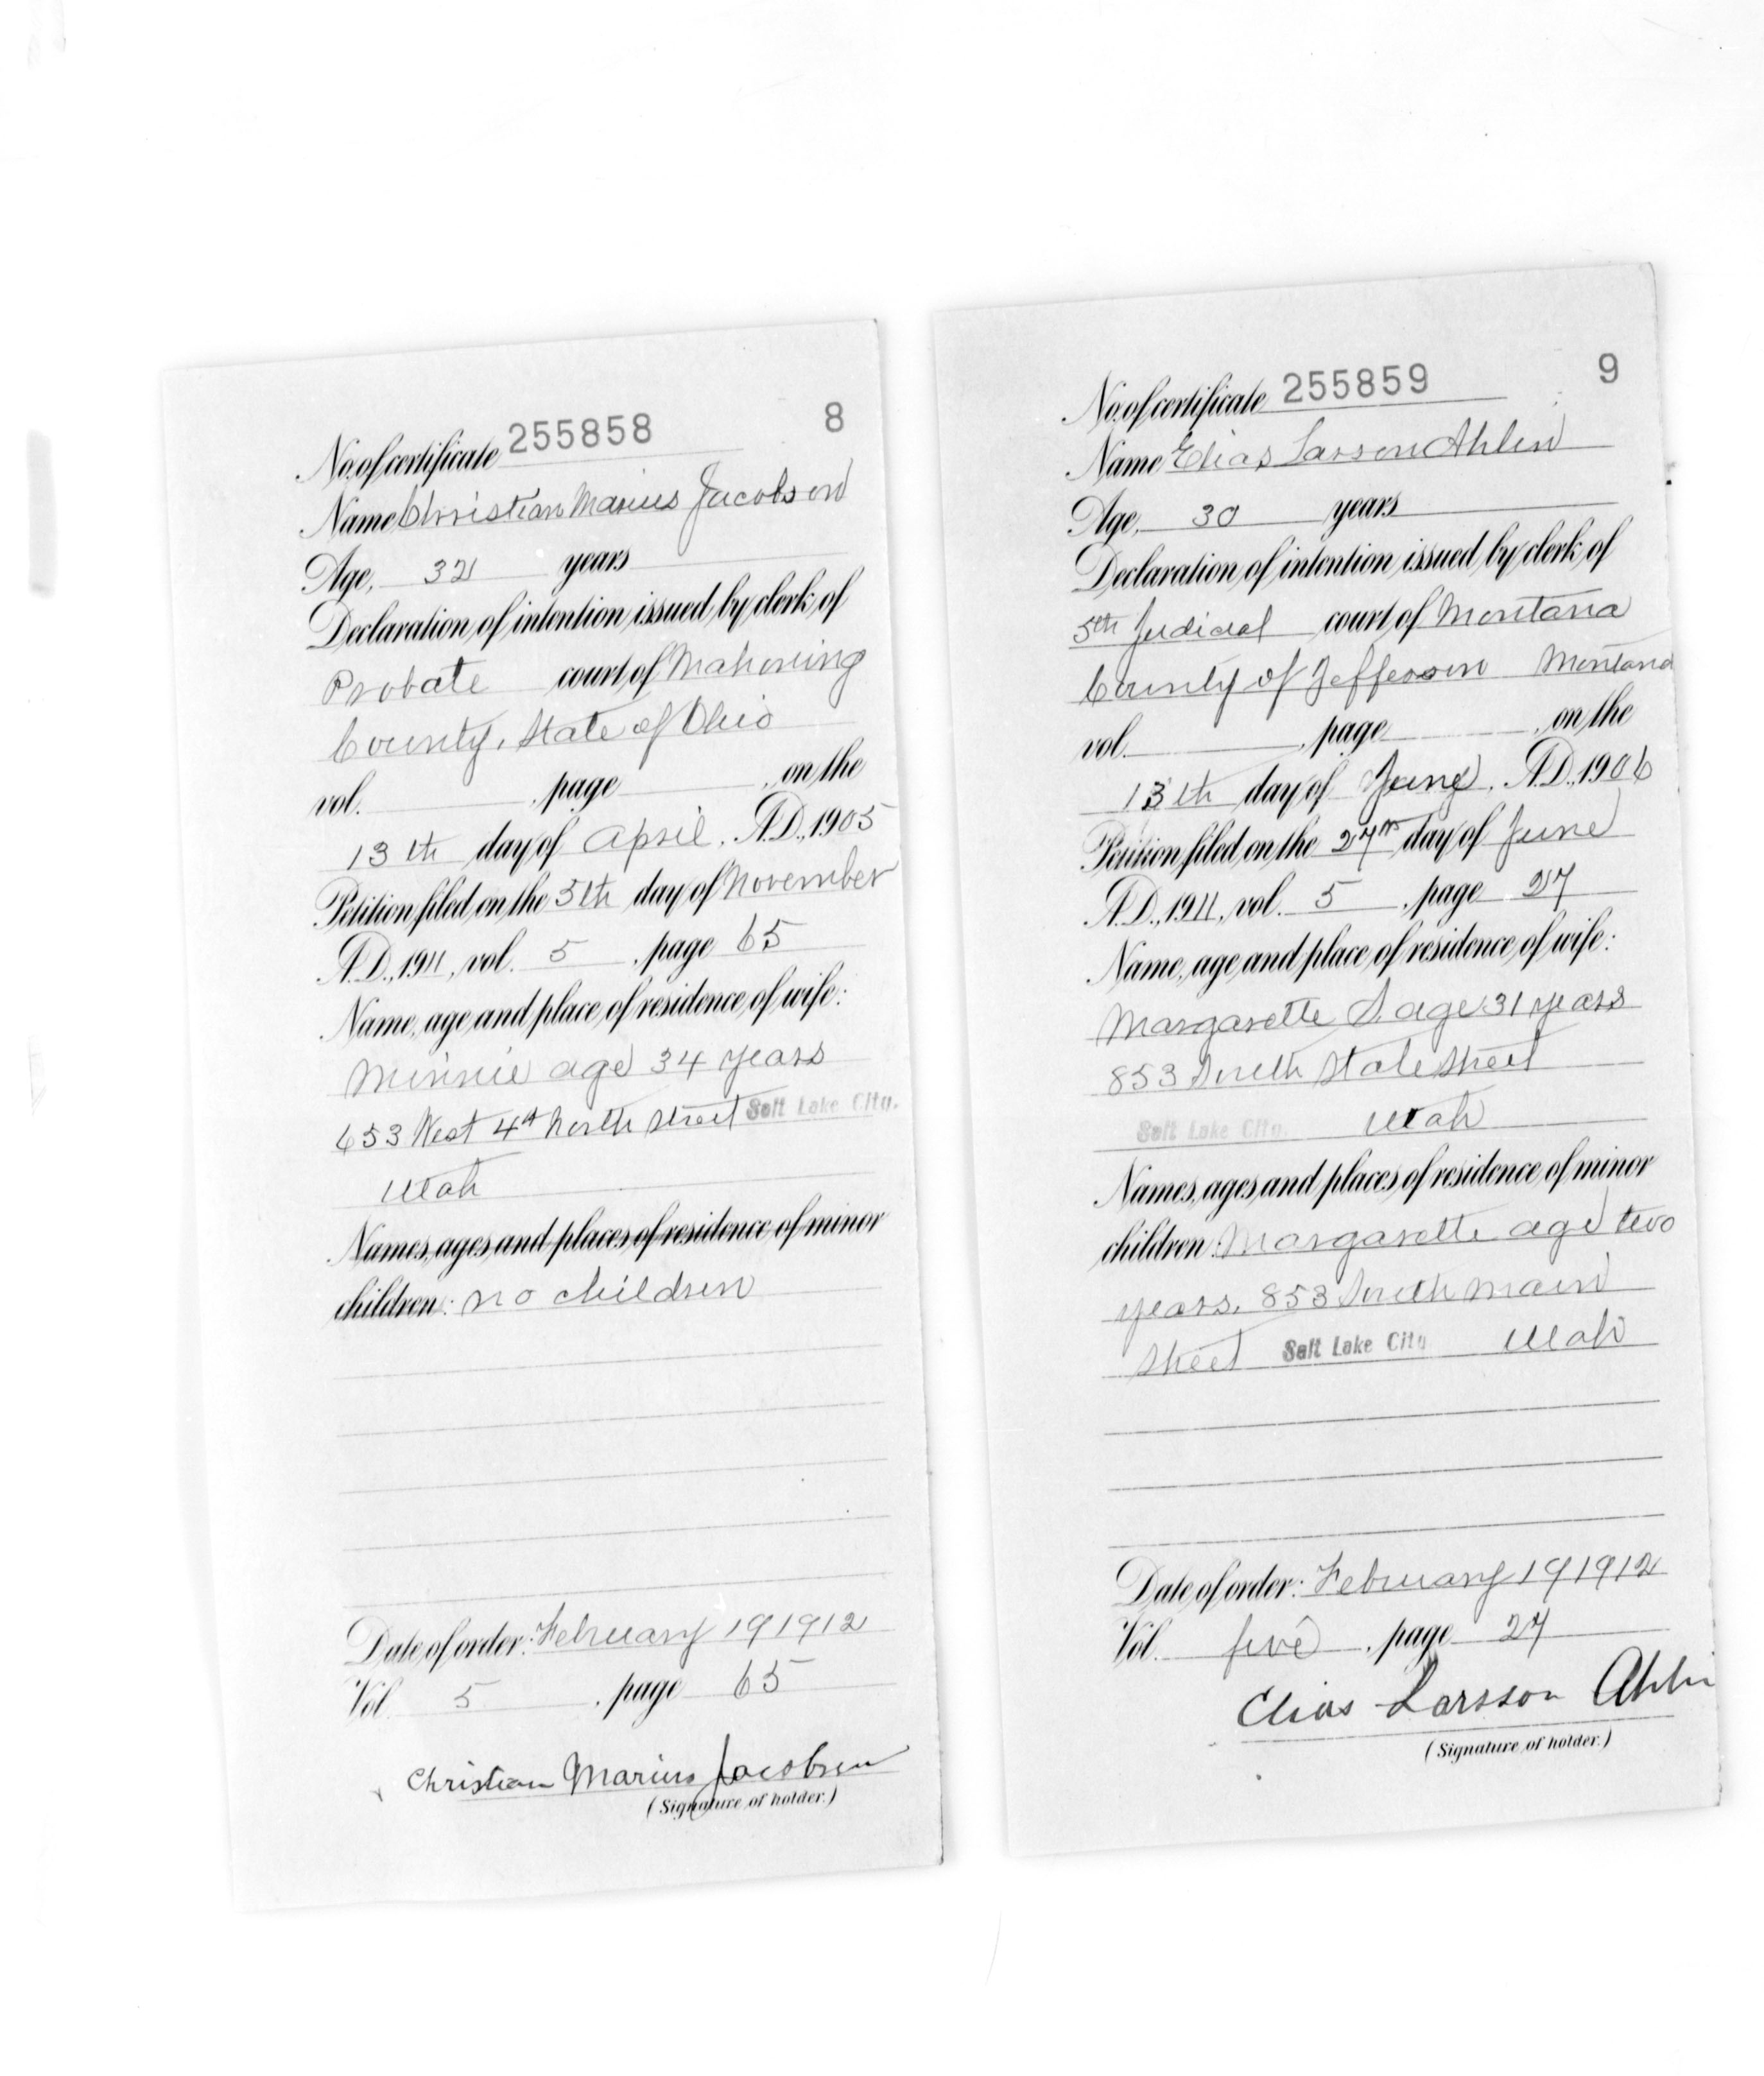 No. of certificate 255858 8
Name Christian Marius Jacobson
Age, 32 years
Declaration of intention issued by clerk of
Probate court of Mahoning
County, State of Ohio
vol. , page , on the
13th day of April, A.D., 1905
Petition filed on the 5th day of November
A.D., 1911, vol. 5, page 65
Name, age and place of residence of wife:
Minnie age 34 years
653 West 4th North Street Salt Lake City.
Utah
Names, ages and places of residence of minor
children: no children
Date of order: February 19 1912
Vol. 5, page 65
Christian Marius Jacobsen
(Signature of holder.)
No. of certificate 255859 9
Name Elias Larson Ahlin
Age, 30 years
Declaration of intention issued by clerk of
5th Judicial court of Montana
County of Jefferson Montana
vol. , page , on the
13th day of June, A.D., 1906
Petition filed on the 27th day of June
A.D., 1911, vol. 5, page 27
Name, age and place of residence of wife:
Margarette S. age 31 years
853 South State Street
Salt Lake City. Utah
Names, ages and places of residence of minor
children: Margarette age two
years. 853 South main
Street Salt Lake City Utah
Date of order: February 19 1912
Vol. five, page 27
Elias Larsson Ahlin
(Signature of holder.)